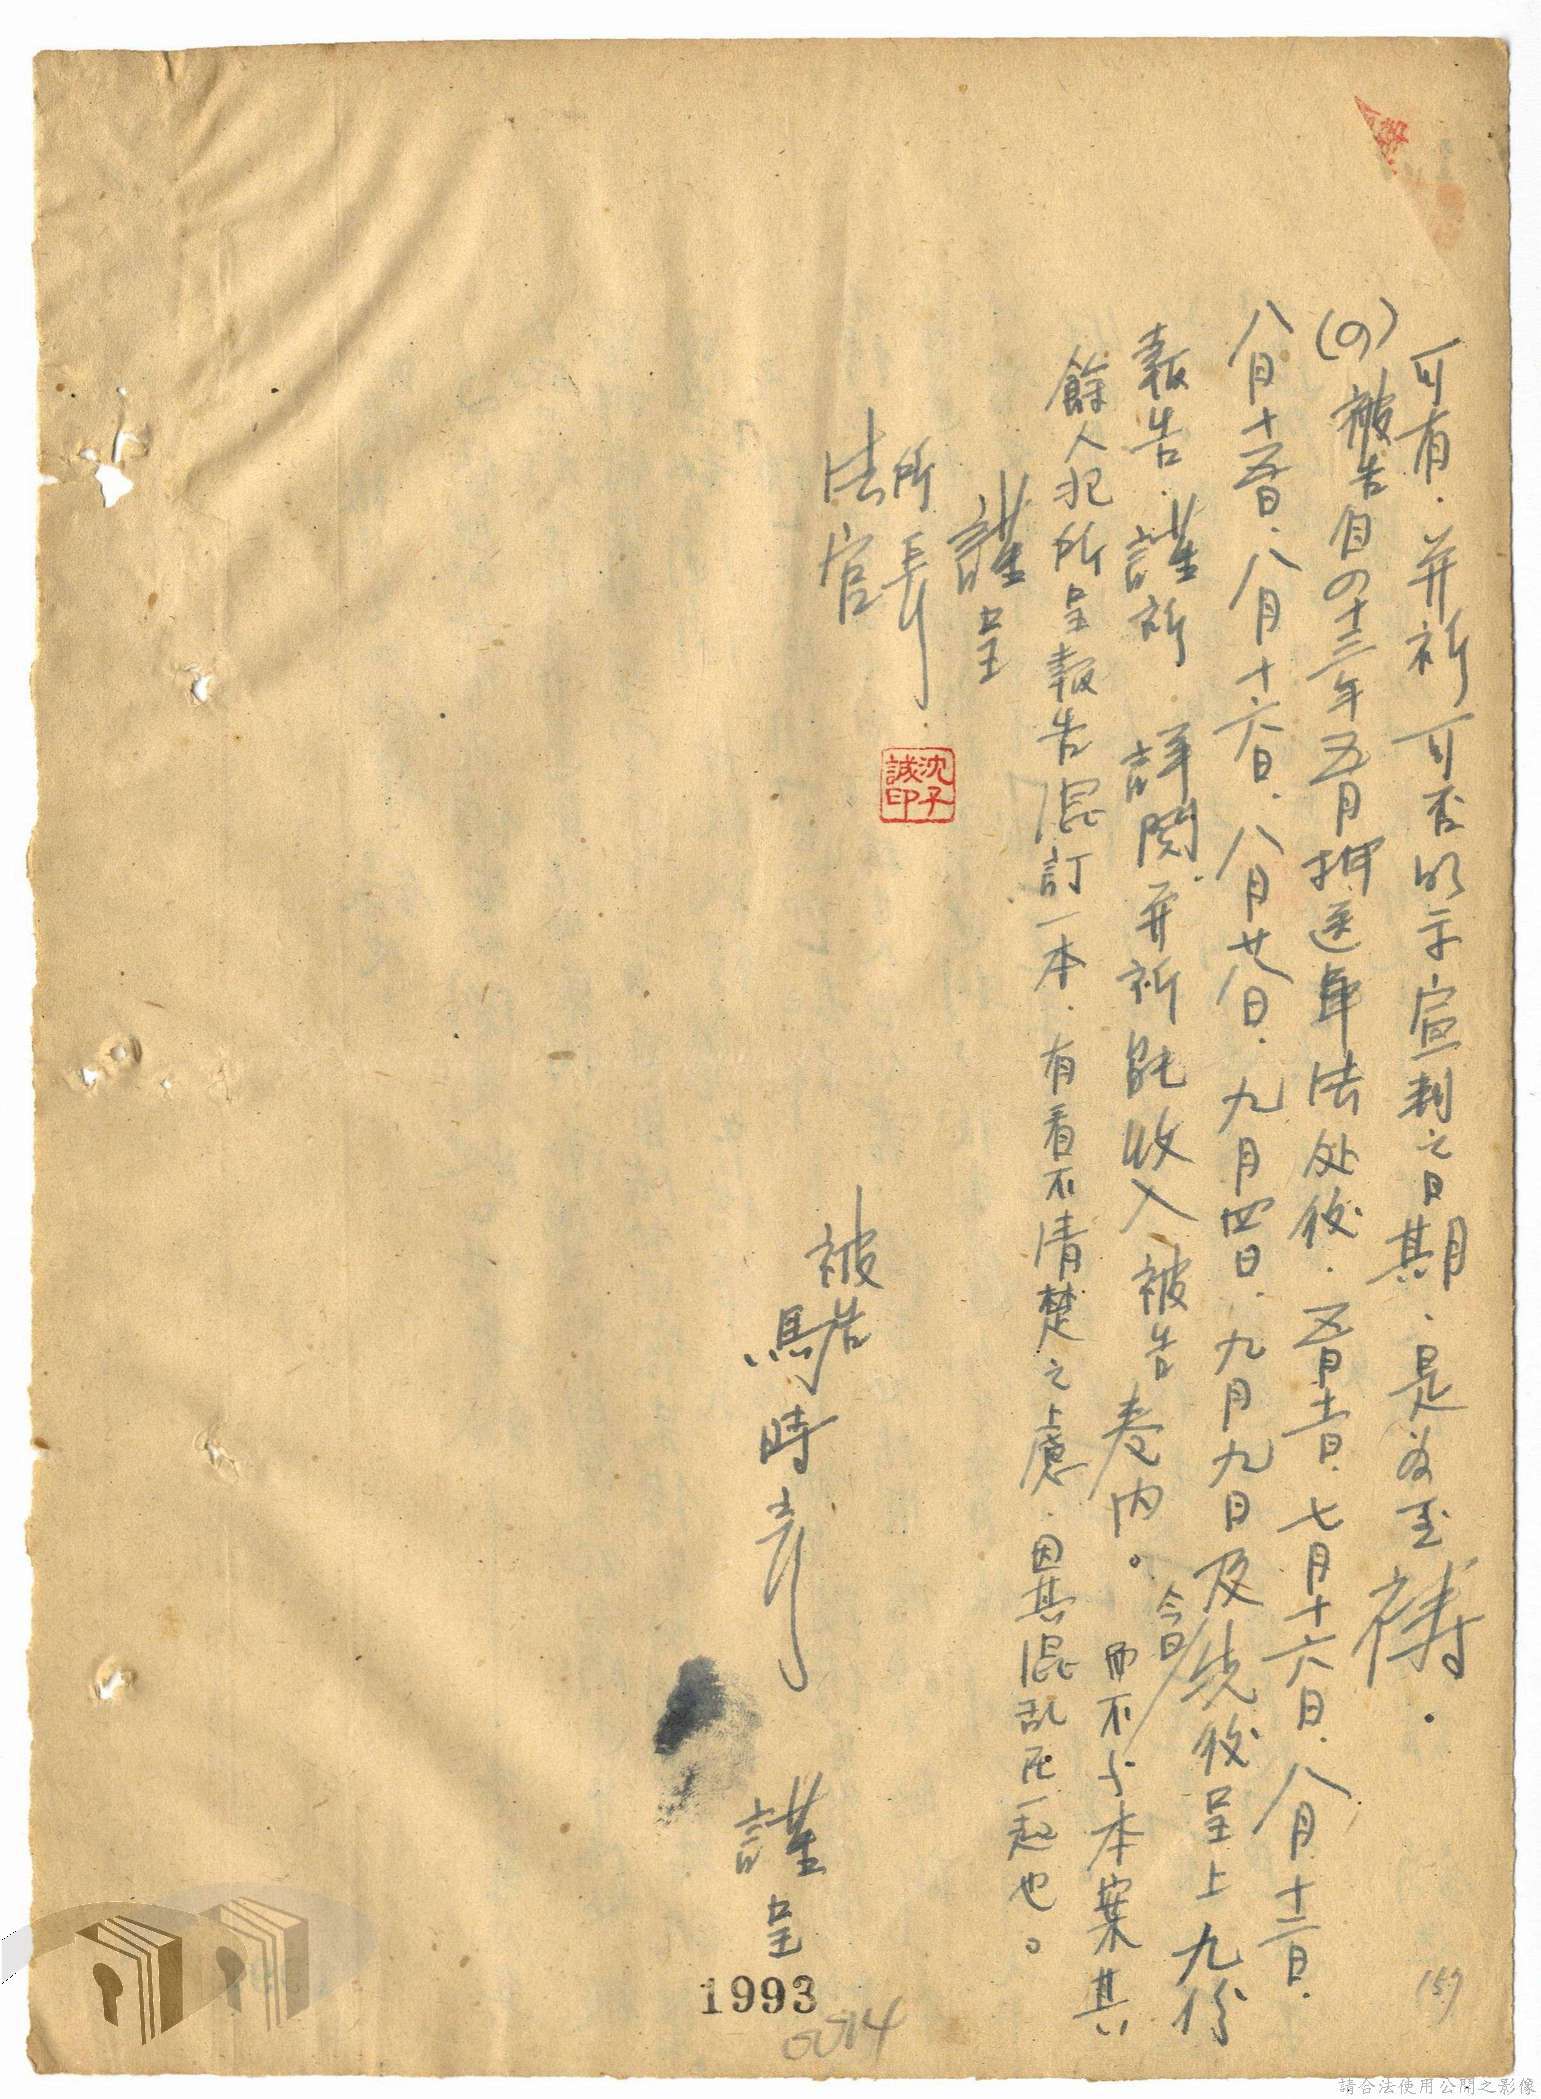 可有．并祈可否明示宣判之日期．是為至禱．
(四)被告自四十三年五月押送軍法处後．五月十一日．七月十六日．八月十三日．
八月十五日．八月十六日．八月廿八日．九月四日．九月九日及今日先後呈上九份
報告．謹祈 詳閱并祈能收入被告卷內。而不与本案其
餘人犯所呈報告混訂一本．有看不清楚之上慮．因其混乱在一起也。
謹呈
所長
法官
沈子誠印
被告
馬時彥
謹呈
1993
0014
157
請合法使用公開之影像